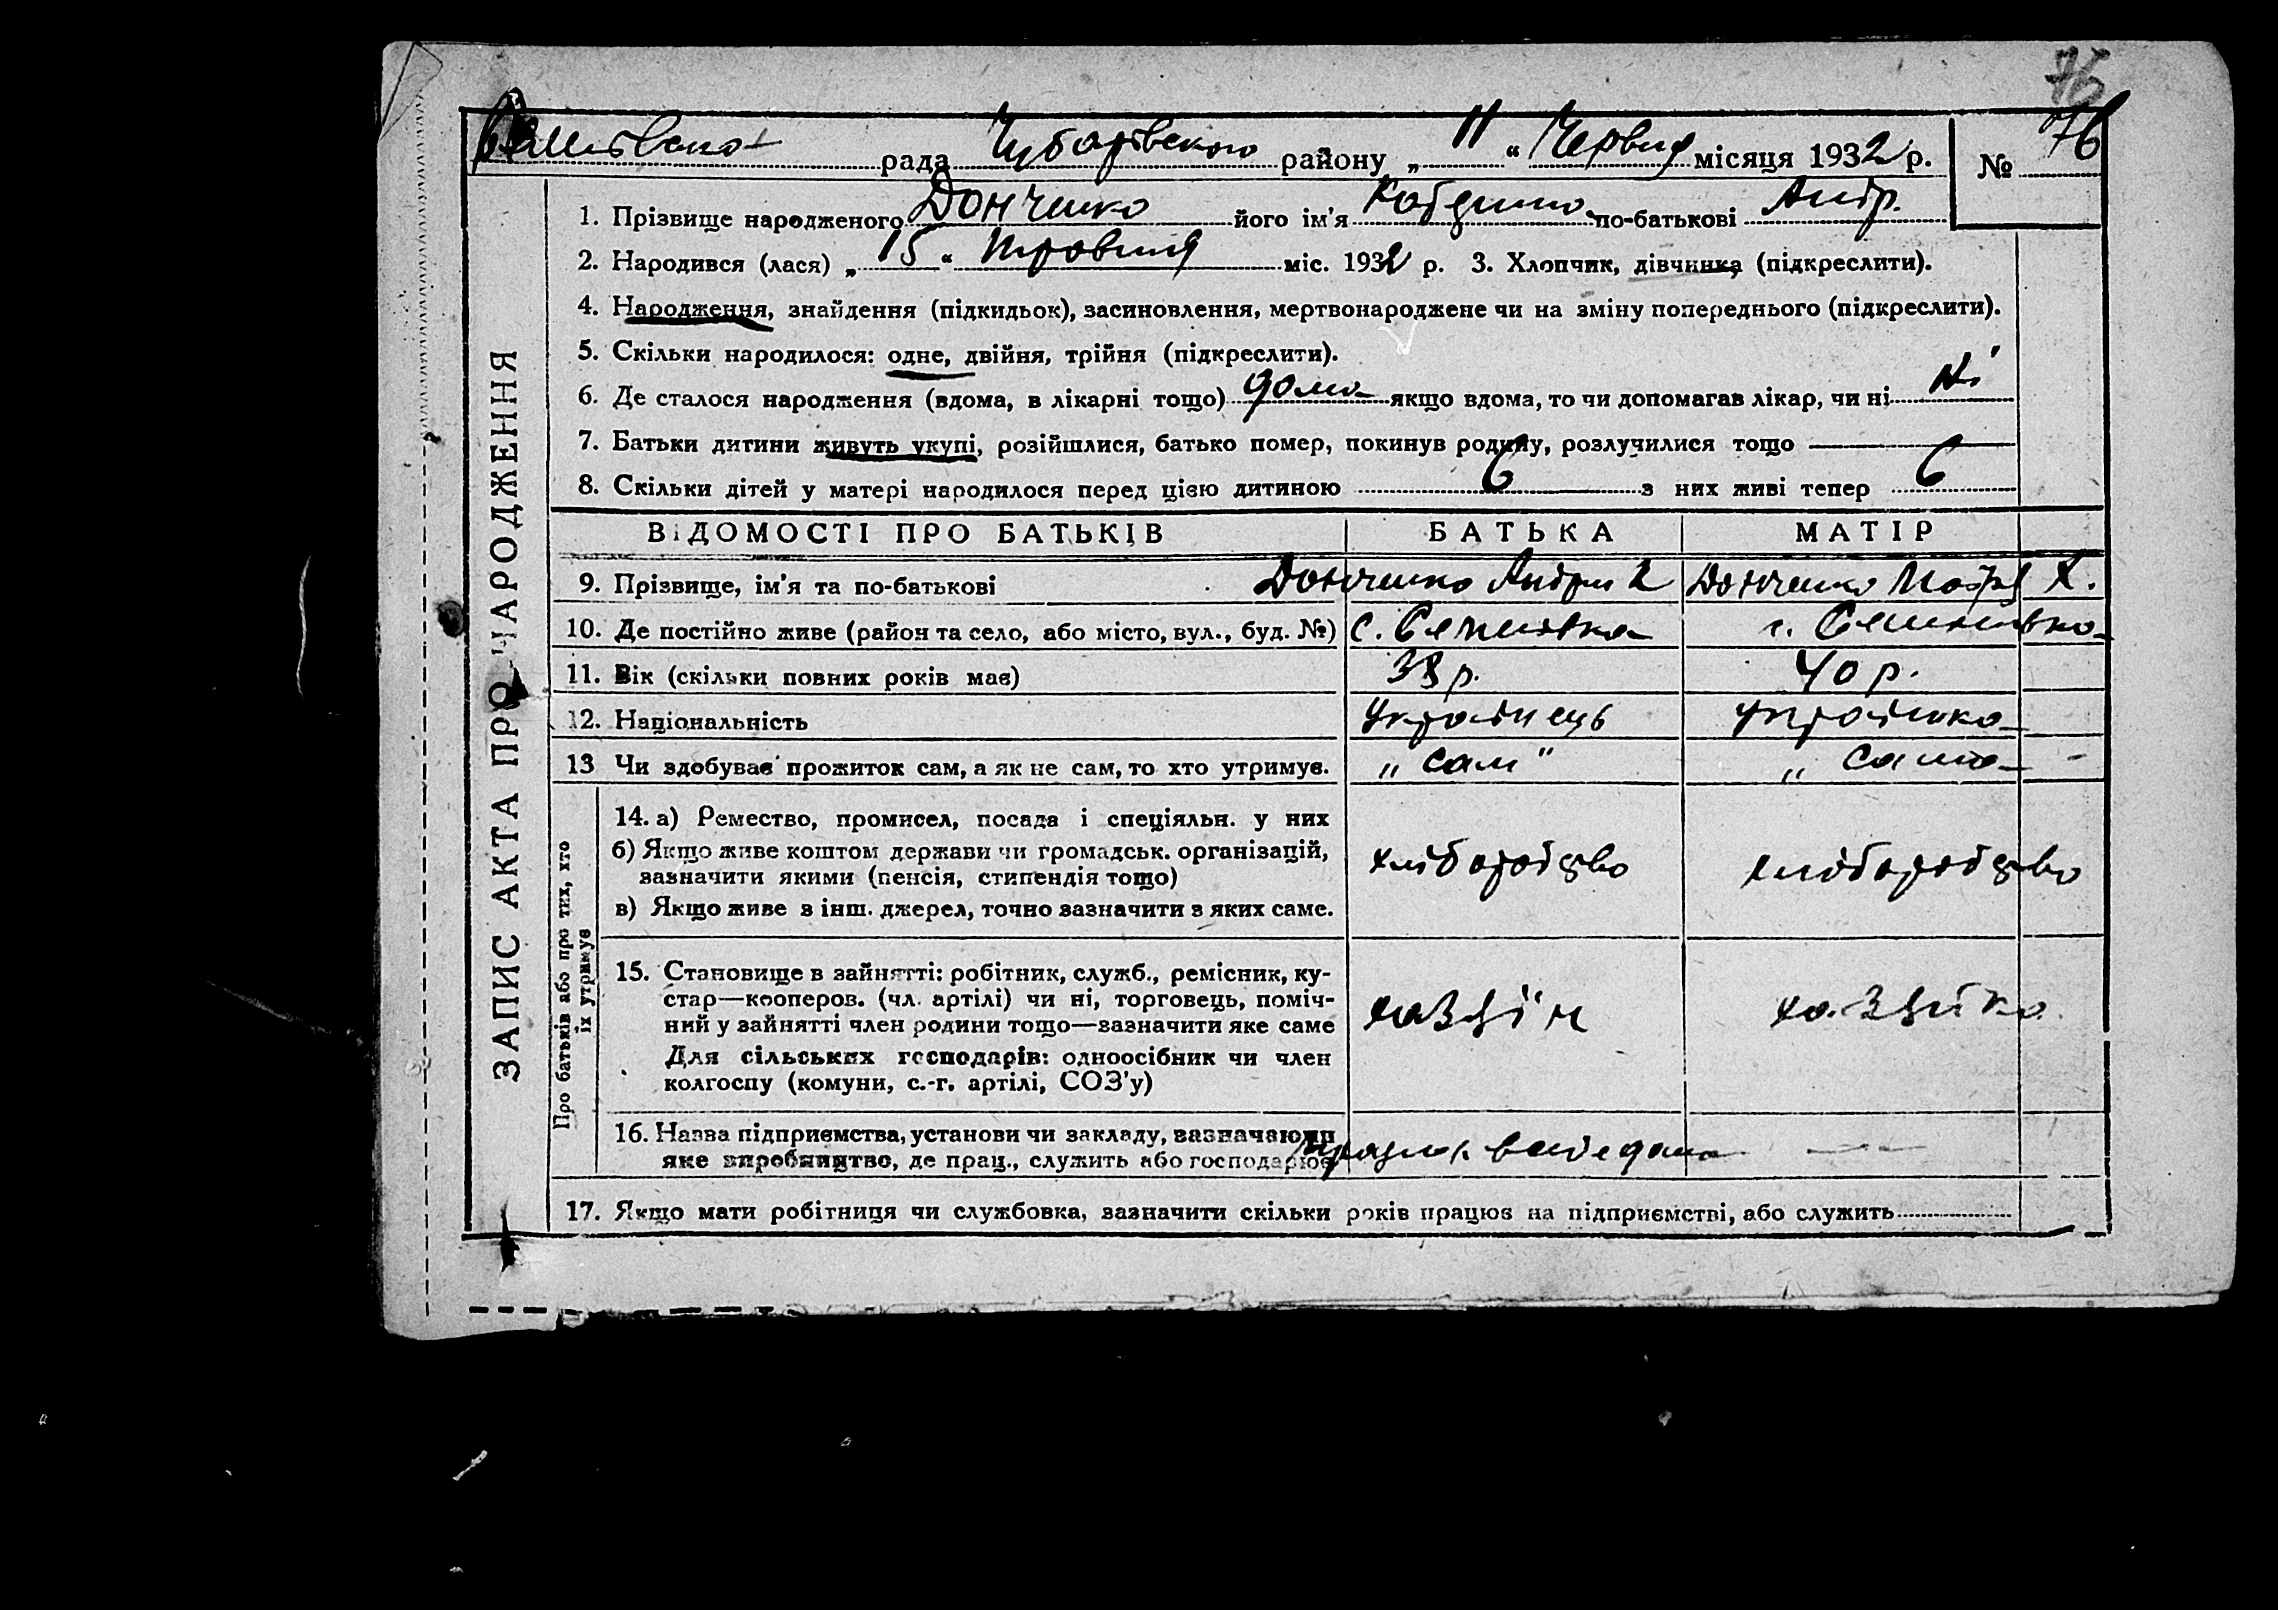 75
рада Чубарівського району „ 11 “ Червня місяця 1932 р. № 76
1. Прізвище народженого Донченко його ім'я по-батькові Андр.
2. Народився (лася) „ 15 “ травня міс. 1932 р. 3. Хлопчик, дівчинка (підкреслити).
4. Народження, знайдення (підкидьок), засиновлення, мертвонароджене чи на зміну попереднього (підкреслити).
5. Скільки народилося: одне, двійня, трійня (підкреслити).
6. Де сталося народження (вдома, в лікарні тощо) дома якщо вдома, то чи допомагав лікар, чи ні ні
7. Батьки дитини живуть укупі, розійшлися, батько помер, покинув родину, розлучилися тощо
8. Скільки дітей у матері народилося перед цією дитиною 6 з них живі тепер 6
ВІДОМОСТІ ПРО БАТЬКІВ БАТЬКА МАТІР
9. Прізвище, ім'я та по-батькові Донченко Андрій Донченко Х.
10. Де постійно живе (район та село, або місто, вул., буд. №) с. с.
11. Вік (скільки повних років має) 38 р. 40 р.
12. Національність Українець українка
13 Чи здобуває прожиток сам, а як не сам, то хто утримує. „ сам “ „ сама -
14. а) Ремество, промисел, посада і спеціяльн. у них
б) Якщо живе коштом держави чи громадськ. організацій,
зазначити якими (пенсія, стипендія тощо)
в) Якщо живе з інш. джерел, точно зазначити з яких саме.
хліборобство хліборобство
15. Становище в зайнятті: робітник, служб., ремісник, ку-
стар—кооперов. (чл. артілі) чи ні, торговець, поміч-
ний у зайнятті член родини тощо—зазначити яке саме
Для сільських господарів: одноосібник чи член
колгоспу (комуни, с.-г. артілі, СОЗ'у)
хазяїн хазяйка
16. Назва підприємства, установи чи закладу, зазначаючи
яке виробництво, де прац., служить або господарює
17. Якщо мати робітниця чи службовка, зазначити скільки років працює на підприємстві, або служить
ЗАПИС АКТА ПРО НАРОДЖЕННЯ
Про батьків або про тих, хто
їх утримує